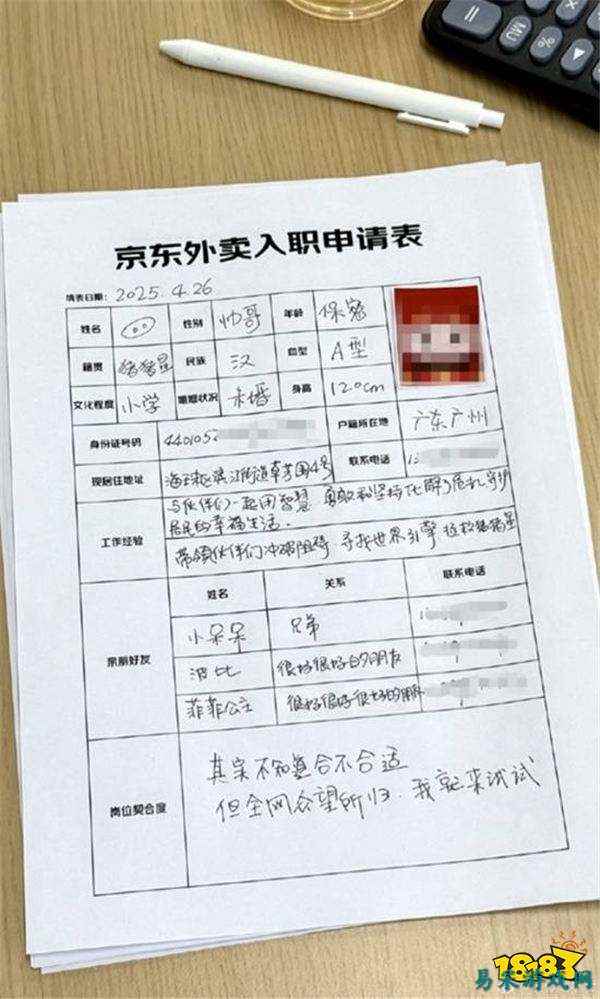 京东外卖入职申请表
填表日期: 2025.4.26
姓名 性别 帅哥 年龄 保密
籍贯 猪猪星 民族 汉 血型 A型
文化程度 小学 婚姻状况 未婚 身高 120cm
身份证号码 440105 户籍所在地 广东广州
现居住地址 海珠区滨江街道草芳围4号 联系电话 1
工作经验
与伙伴们一起用智慧 勇敢和坚持化解了危机 守护
居民的幸福生活.
带领伙伴们冲破阻碍 寻找世界引擎 拯救猪猪星
亲朋好友
姓名 关系 联系电话
小呆呆 兄弟 1
波比 很好很好的朋友 1
菲菲公主 很好很好很好的朋 1
岗位契合度
其实不知复合不合适
但全网众望所归. 我就来试试
MU
%
18183
易采游戏网